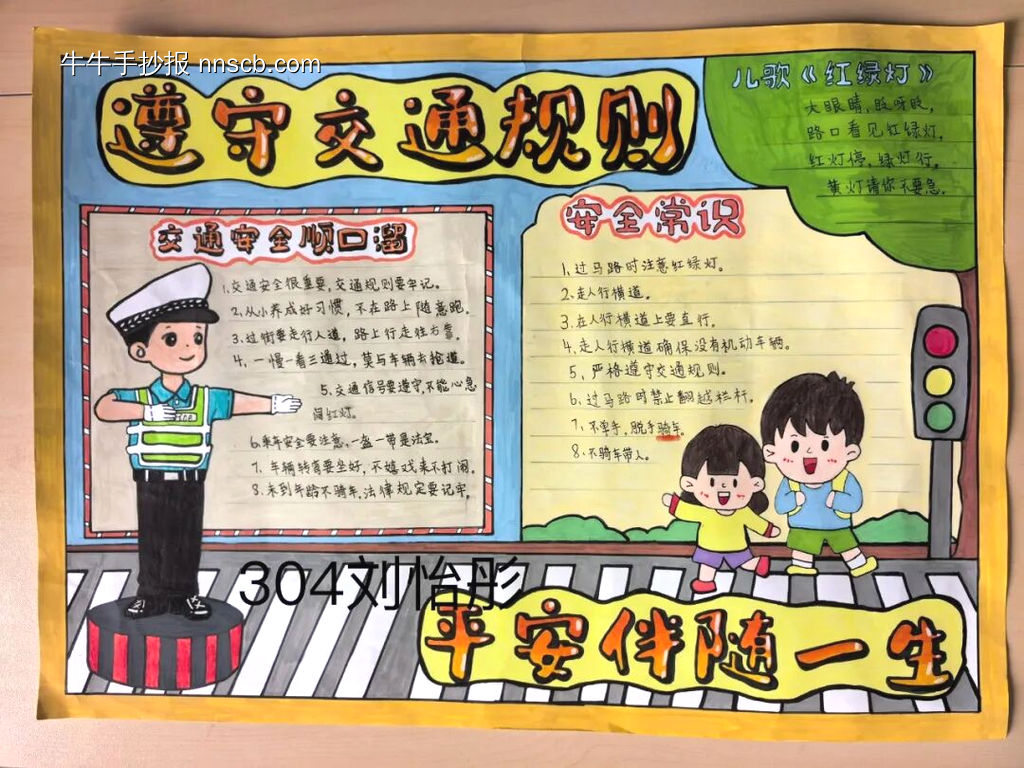 牛牛手抄报 nnscb.com
遵守交通规则
儿歌《红绿灯》
大眼睛,眨呀眨,
路口看见红绿灯,
红灯停,绿灯行,
黄灯请你不要急。
交通安全顺口溜
1、交通安全很重要,交通规则要牢记。
2、从小养成好习惯,不在路上随意跑。
3、过街要走行人道,路上行走往右靠。
4、一慢一看三通过,莫与车辆去抢道。
5、交通信号要遵守,不能心急
闯红灯。
6、乘车安全要注意,一盔一带是法宝。
7、车辆转弯要坐好,不嬉戏来不打闹。
8、未到年龄不骑车,法律规定要记牢,
安全常识
1、过马路时注意红绿灯。
2、走人行横道。
3、在人行横道上要直行。
4、走人行横道确保没有机动车辆。
5、严格遵守交通规则。
6、过马路时禁止翻越栏杆。
7、不单手,脱手骑车。
8、不骑车带人。
304刘怡彤
平安伴随一生